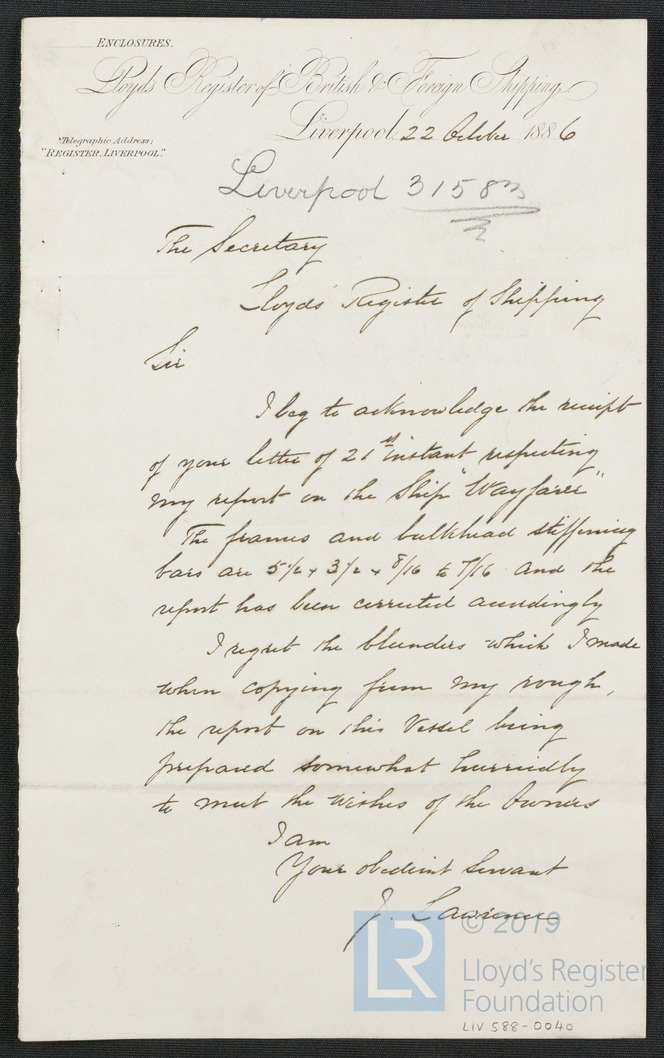 ENCLOSURES.
Lloyds Register of British & Foreign Shipping
Liverpool, 22 October 1886
"Telegraphic Address;
"REGISTER, LIVERPOOL"."
Liverpool 31583
The Secretary
Lloyds' Register of Shipping
Sir
I beg to acknowledge the receipt
of your letter of 21st instant respecting
my report on the Ship "Wayfarer"
The frames and bulkhead stiffening
bars are 5 1/2 x 3 1/2 x 8/16 to 7/16 and the
report has been corrected accordingly
I regret the blunders which I made
when copying from my rough,
the report on this Vessel being
prepared somewhat hurriedly
to meet the wishes of the Owners
I am
Your obedient Servant
J. Lawrence
© 2019
LR
Lloyd's Register
Foundation
LIV 588-0040